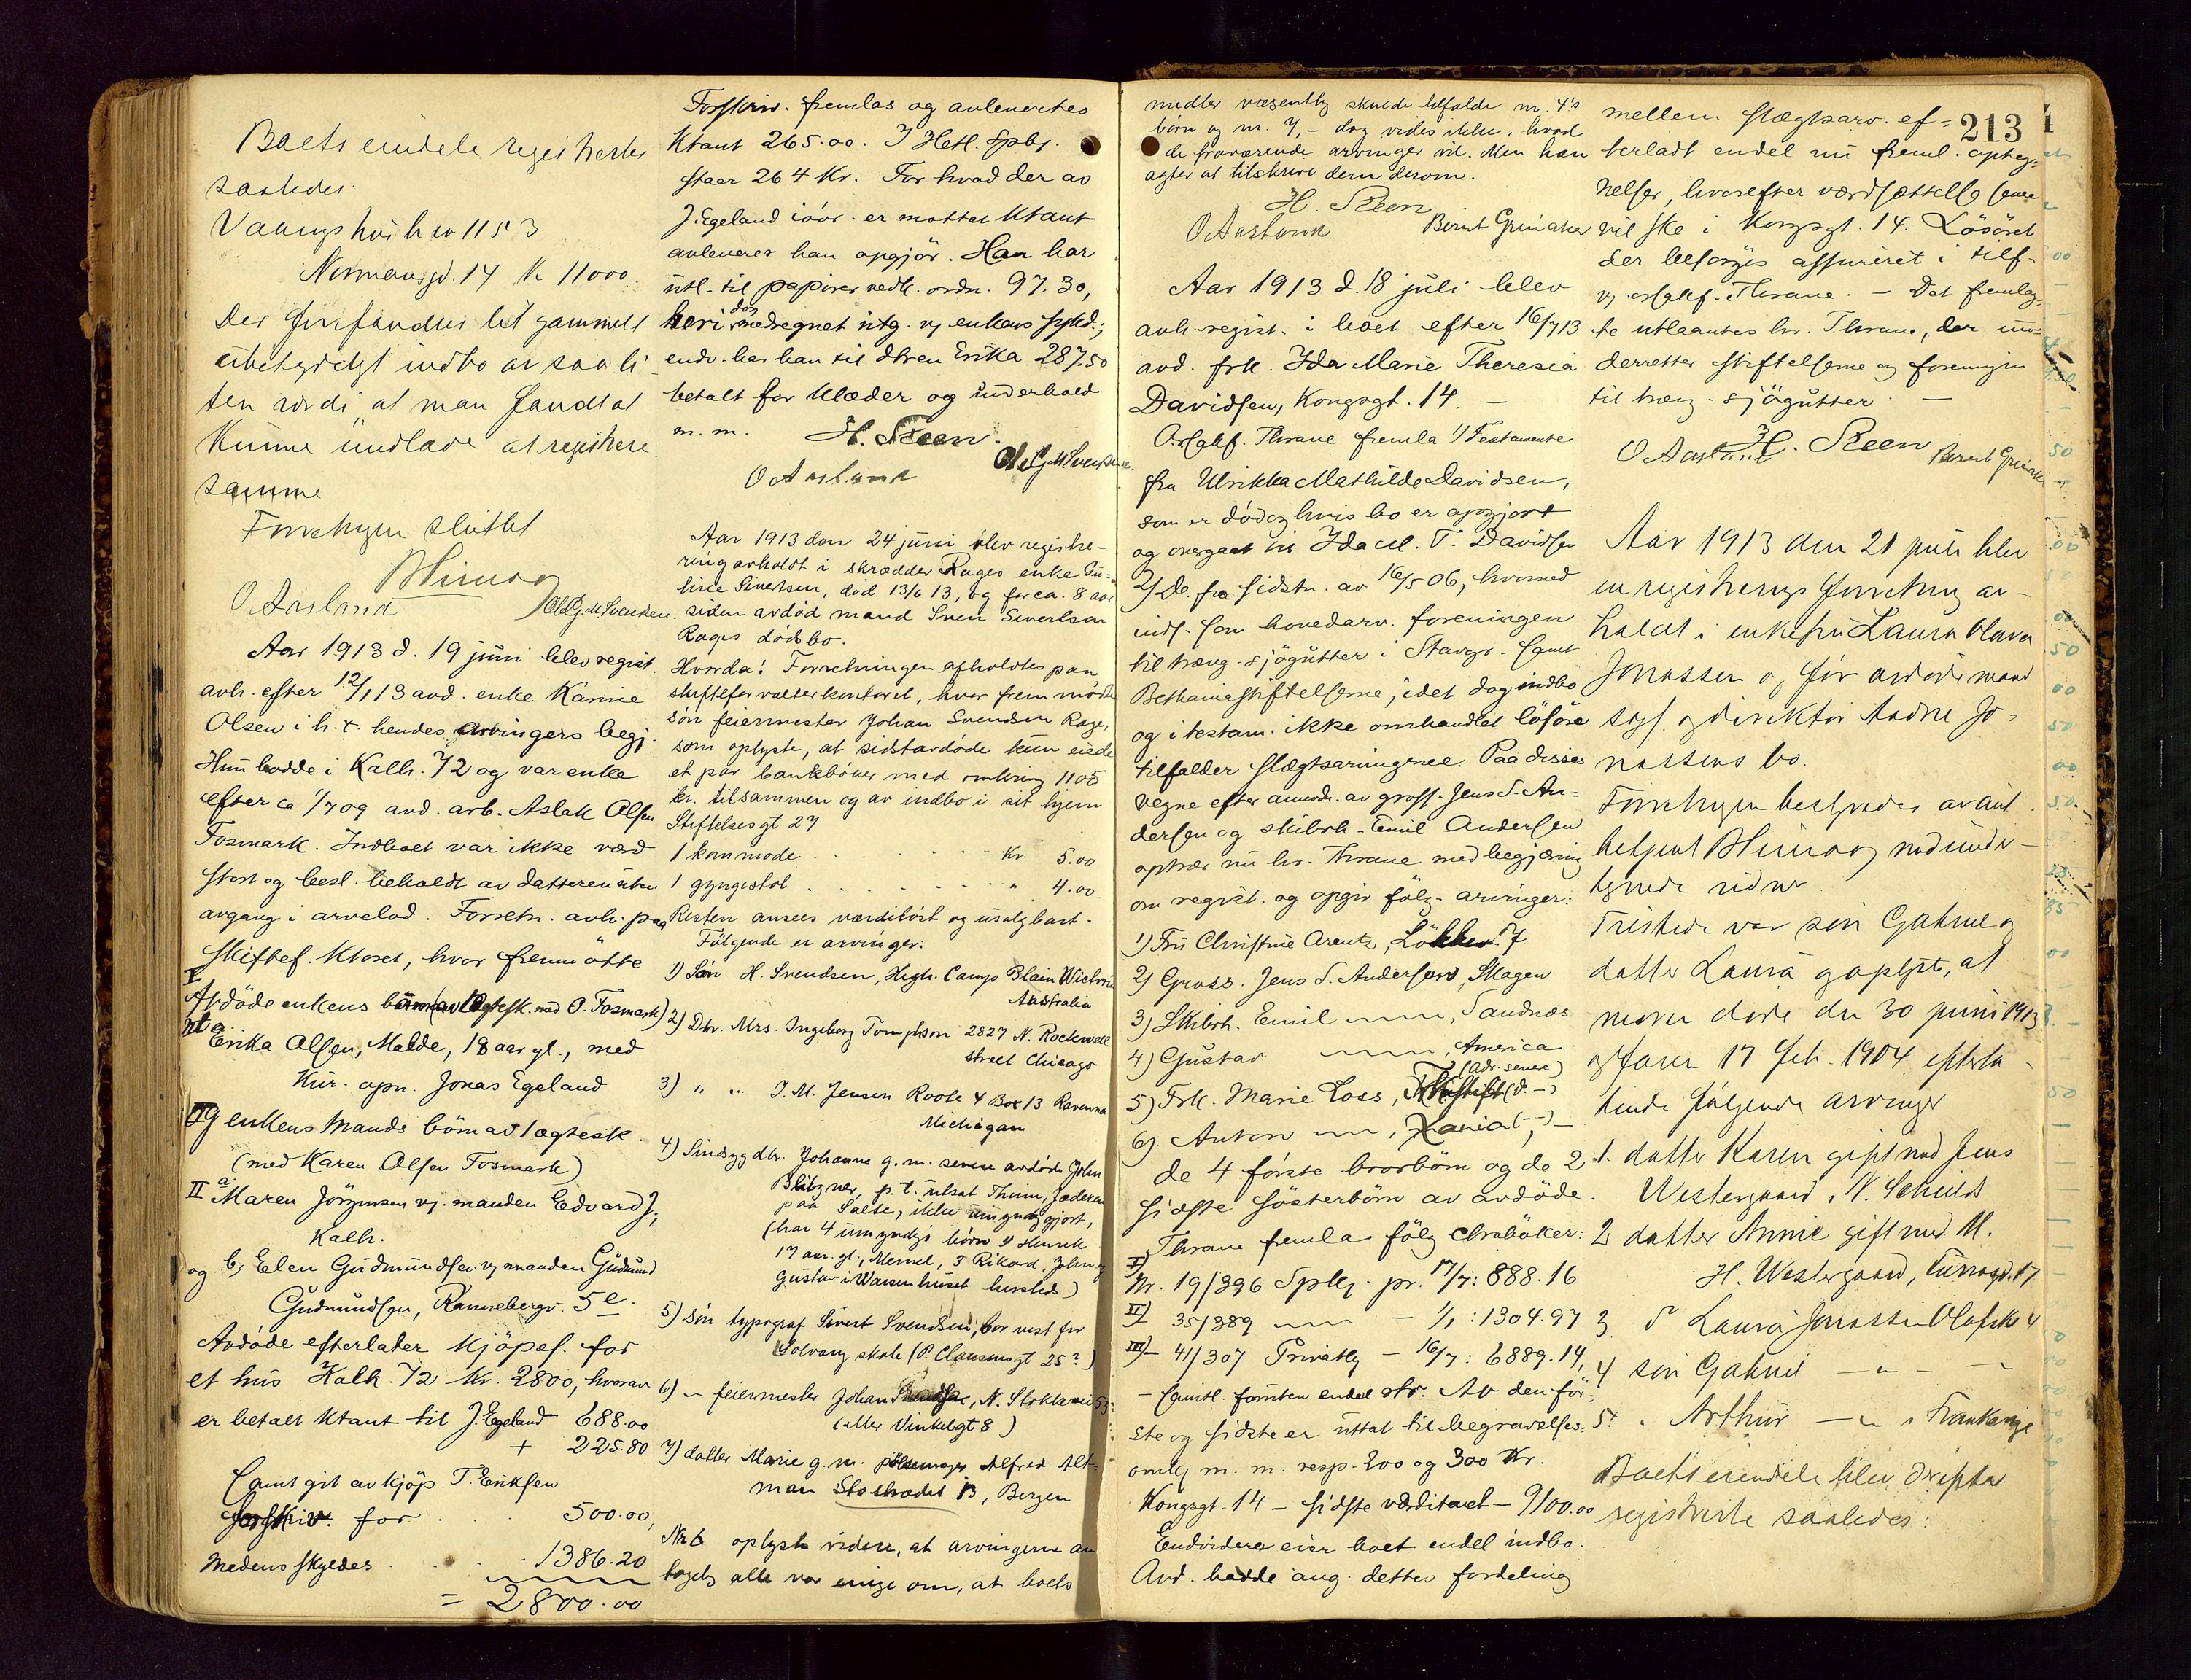 Boets eiendele registrertes
saaledes
Vaaningshus br no 1153
Normansgd. 14 Kr 11000.
Der forefandtes lit gammelt
ubetydeligt indbo av saa li-
ten værdi, at man fandt at
kunne undlade at registrere
samme
Forretngen sluttet
O Aasland
Old G. M. Svendsen.
Aar 1913 d. 19 juni blev regist.
avh. efter 12/1 13 avd. enke Karine
Olsen i h. t. hendes arvingers begj.
Hun bodde i Kalh. 72 og var enke
efter ca 1/7 09 avd. arb. Aslak Olsen
Fosmark. Indboet var ikke værd
stort og besl. beholdt av datteren uten
avgang i arvelod. Forretn. avh. paa
Skiftef. Ktoret, hvor fremmötte
I
Avdöde enkens börn (av ægtesk. med O. Fosmark)
Erika Olsen, Malde, 18 aar gl., med
Kur. opn. Jonas Egeland
Og enkens Mands börn av 1 ægtesk.
(med Karen Olsen Fosmark)
II a Maren Jörgensen vj. manden Edvard J.,
Kalh.
og b, Elen Gudmundsen vj manden Gudmund
Gudmundsen, Rannebergs. 5 e.
Avdöde efterlater kjöpes. for
et hus Kalh. 72 Kr. 2800, hvorav
er betalt Ktant til J. Egeland 688.00
+ 225.80
samt git av kjöp. T. Eriksen
forskriv. for . . . 500.00,
Medens skyldes . . . 1386.20
= 2800.00
Forskriv. fremlas og avlevertes
Ktant 265.00. I Hetl. Spbk.
staar 264 Kr. For hvad der av
J. Egeland iaar er mottat Ktant
avleverer han opgjör. Han har
utl. til papirer vedk. ordn. 97.30,
heri dog medregnet utg. vj enkens sykd.;
endv. har han til dtren Erika 287.50
betalt for klæder og underhold
m. m.
H. Steen.
O Aasland
Old G. M. Svendsen.
Aar 1913 den 24 juni blev registre-
ring avholdt i skrædder Rages enke Gu-
line Sivertsen, död 13/6 13, og for ca. 8 aar
siden avdöd mand Sven Sivertsen
Rages dödsbo.
Hvorda! Forretningen afholdtes paa
skifteforvalterkontoret, hvor frem mödte
sön feiermester Johan Svendsen Rage,
som oplyste, at sidstavdöde kun eiede
et par bankböker med omkring 1100
kr. tilsammen og av indbo i sit hjem
Stiftelsesgt 27
1 kommode . . . Kr. 5.00
1 gyngestol . . . " 4.00
Resten ansees værdilöst og usalgbart.
Fölgende er arvinger:
1) Sön H. Svendsen, High. Camp Blain Victoria
Australia
2) Dtr. Mrs. Ingeborg Tompson 2827 N. Rockwell
street Chicago
3) " " J. M. Jensen Roote 4 Box 13 Ravenna
Michigan
4) Sindsyg dtr. Johanne g. m. senere avdöde John
Blitzner, p. t. utsat Thime, Jæderen
paa Salte, ikke umyndiggjort,
(har 4 umyndige börn 1) Henrik
17 aar. gl., Mernel, 3 Rikard, John og
Gustav i Waisenhuset hersteds)
5) sön typograf Sivert Svendsen, bor vest for
Solvang skole (P. Clausensgt 25?)
6) — feiermester Johan Svendsen, N. Stokkavei 53.
(eller Vinkelgt 8)
7) datter Marie g. m. pölsemager Alfred Alt-
man Stostrædet 13, Bergen
Nr. 6 oplyste videre, at arvingerne an-
tagelig alle var enige om, at boets
213
midler væsentlig skulde tilfalde nr. 4's
börn og nr. 7, — dog vides ikke, hvad
de fraværende arvinger vil. Men han
agter at tilskrive dem derom.
H. Steen
O Aasland
Bernt Grinaker
Aar 1913 d. 18 juli blev
avh. regist. i boet efter 16/7 13
avd. frk. Ida Marie Theresia
Davidsen, Kongsgt. 14. —
O.r.sakf. Thrane fremla 1) Testamente
fra Ulrikka Mathilde Davidsen,
som er död og hvis bo er opgjort
og overgaat til Ida M. T. Davidsen
2) Do. fra sidstn. av 16/5 06, hvorved
inds. som hovedarv. foreningen
til træng. sjögutter i Stavgr. samt
Bethaniastiftelserne, idet dog indbo
og i testam. ikke omhandlet lösöre
tilfalder slægtsarvingene. Paa disses
vegne efter anmodn. av gross. Jens S. An-
dersen og skibsh. Emil Andersen
optrær nu hr. Thrane med begjæring
om regist. og opgir fölg. arvinger:
1) Fru Christine Arentz, Lökkev. 7
2) Gross. Jens S. Andersen, Skagen
3) Skibsh. Emil —"—, Sandnæs
4) Gustav —"—, America
(adr. senere)
5) Frk. Marie Loss, (d. —)
6) Anton —"—, Xania (- —) —
de 4 förste brorbörn og de 2
sidste sösterbörn av avdöde.
Thrane fremla fölg. ktrabøker:
I) Nr. 19/396 Spbkj. pr. 17/7: 888.16
II) 35/389 —"— — 1/1: 1304.97
III) — 41/307 Privatbk — 16/7: 6889.14,
— samtl. foruten endel rtr. Av den för-
ste og sidste er uttat til begravelses-
omk m. m. resp. 200 og 300 Kr.
Kongsgt. 14 — sidste værditaxt — 9100.00
Endvidere eier boet endel indbo.
Avd. hadde ang. dettes fordeling
mellem slægtsarv. ef-
terladt endel nu freml. opteg-
nelser, hvorefter værdsættelse senere
vil ske i Kongsgt. 14. Lösöret
der besörges assureret i tilf.
vj o.r.sakf. Thrane. — Det fremlag-
te utlaantes hr. Thrane, der un-
derretter stiftelserne og foreningen
til træng. sjögutter. —
H. Steen
O Aasland
Bernt Grinaker
Aar 1913 den 21 juli blev
en registrerings forretning av-
holdt i enkefru Laura Olava
Jonassen og för avdöde mand
sagf. og direktör Aadne Jo-
nassens bo.
Forretngen bestyredes av aut.
betjent med under-
tegnede vidner.
Tilstede var sön Gabriel og
datter Laura g oplyste, at
moren döde den 30 juni 1913
og faren 17 feb. 1904 efterla-
tende fölgende arvinger
1. datter Karen gift med Jens
Westergaard, N.
2 datter Annie gift med M.
H. Westergaard, 17
3 d Laura Jonassen Olafskl 4
4 sön Gabriel — " — "
5. " Arthur — " —
Boets eiendele blev derefter
registrerte saaledes: